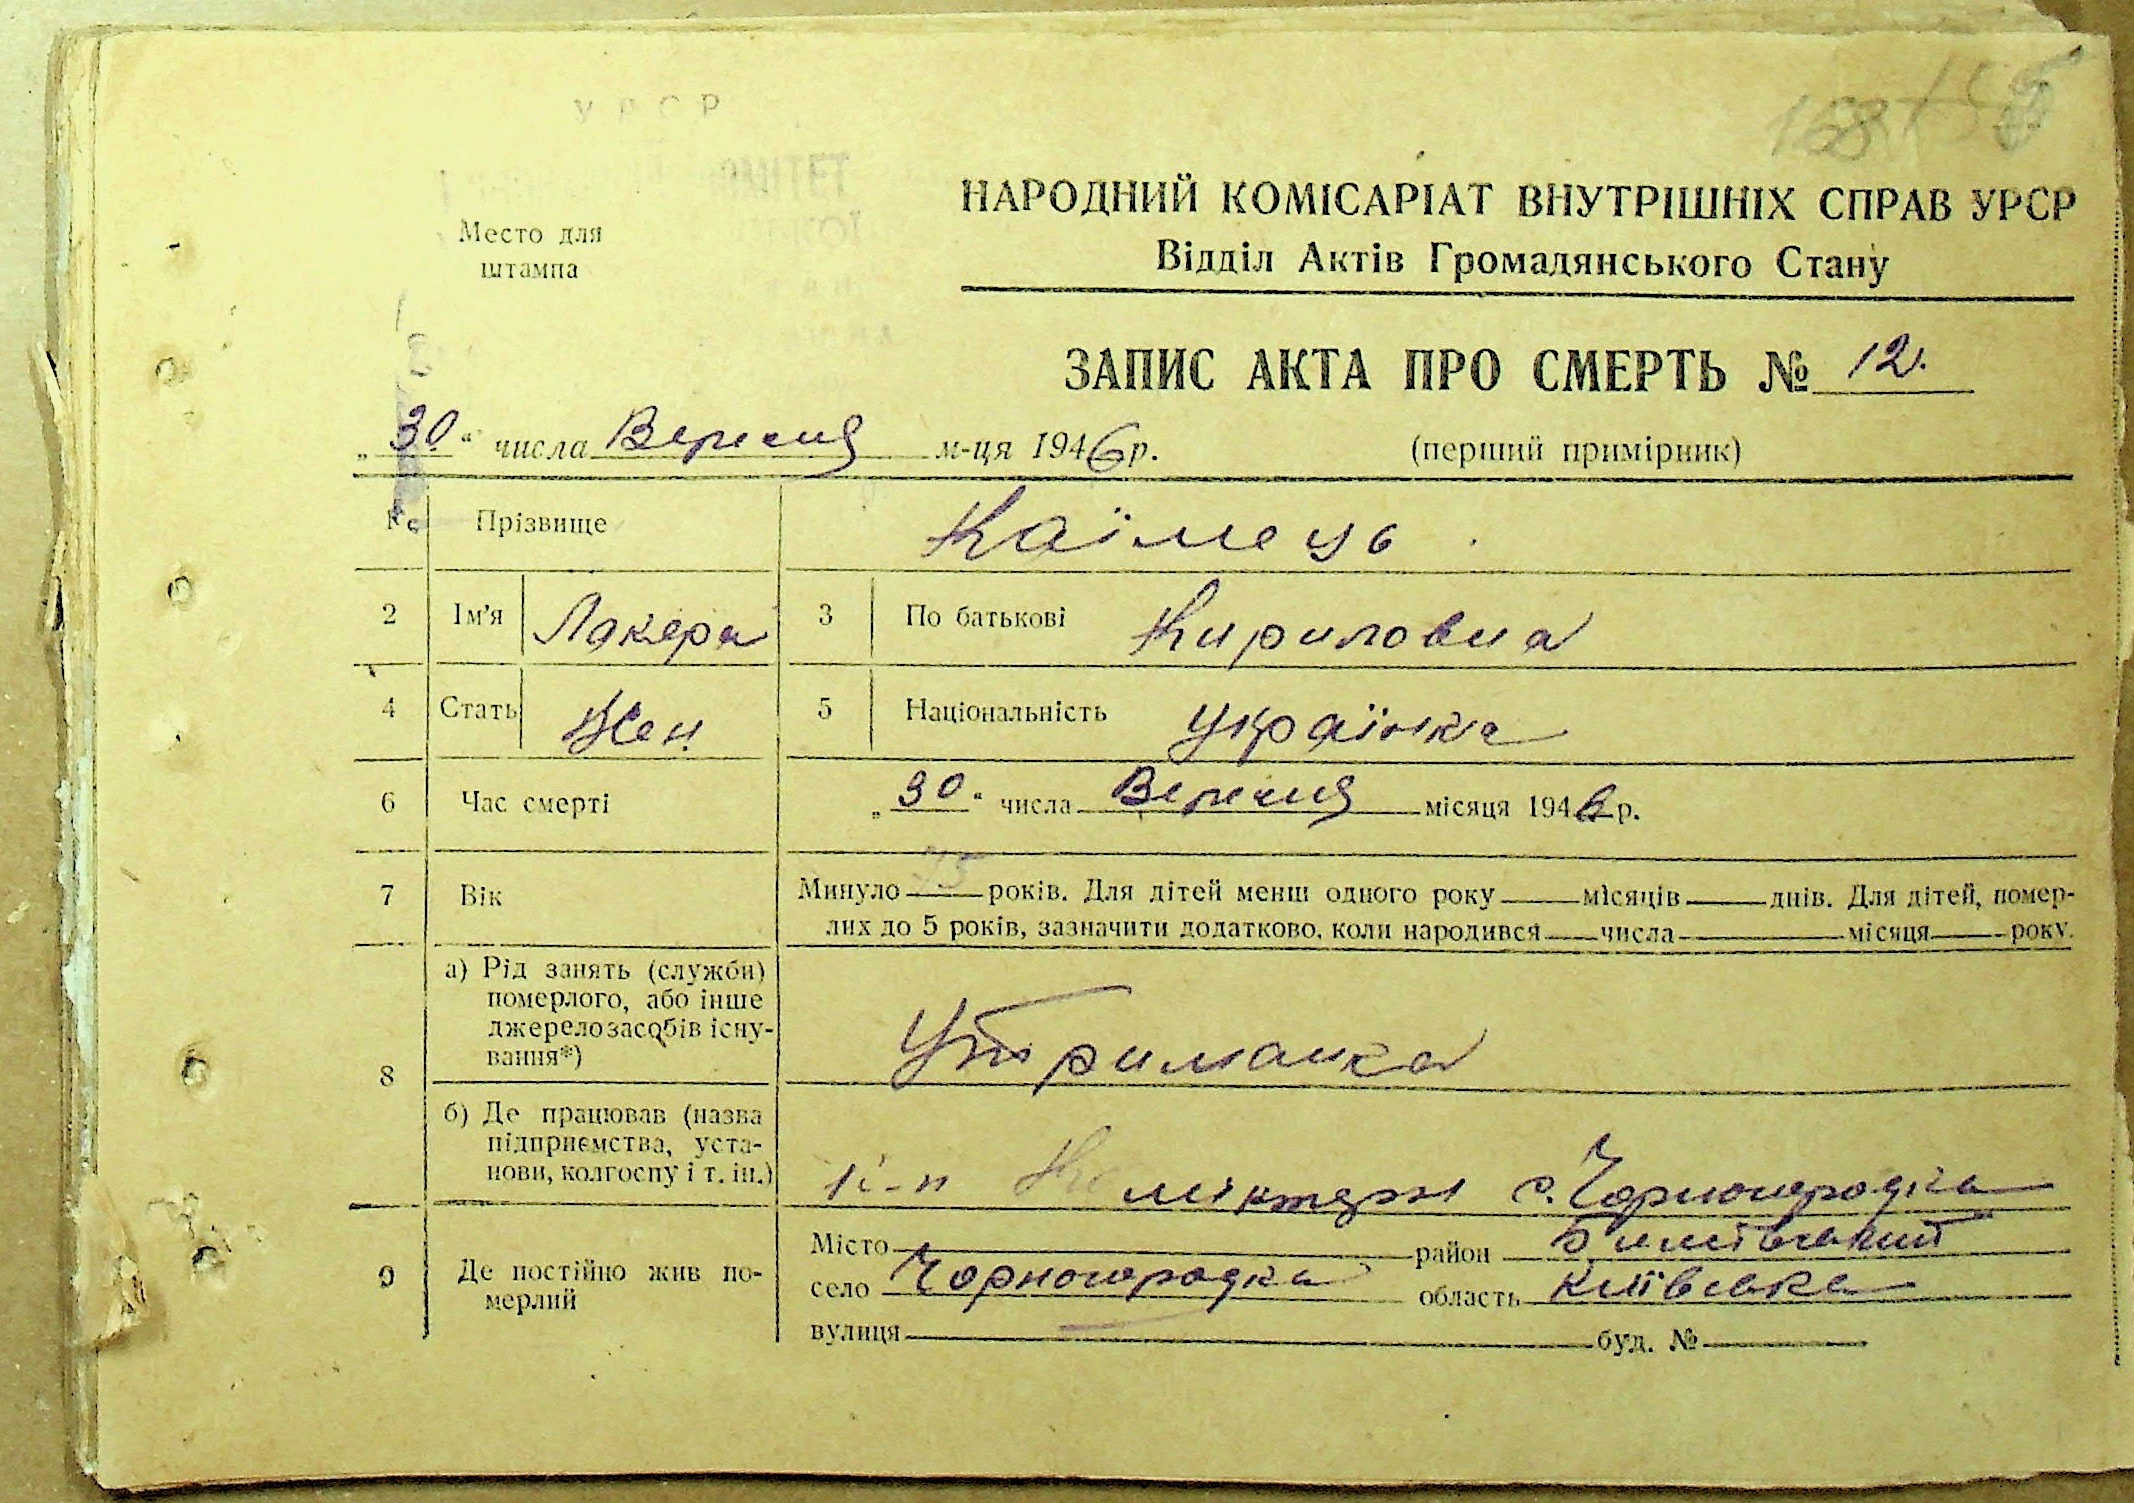 УРСР
Место для
штампа
НАРОДНИЙ КОМІСАРІАТ ВНУТРІШНІХ СПРАВ УРСР
Відділ Актів Громадянського Стану
ЗАПИС АКТА ПРО СМЕРТЬ № 12.
„30.“ числа Вересня м-ця 1946 р. (перший примірник)
Прізвище Каїмець
2 Ім'я Лакера 3 По батькові Кириловна
4 Стать Жен 5 Національність Українка
6 Час смерті „30“ числа Вересня місяця 1946 р.
7 Вік Минуло 75 років. Для дітей менш одного року місяців днів. Для дітей, помер-
лих до 5 років, зазначити додатково, коли народився числа місяця року.
8 а) Рід занять (служби)
померлого, або інше
джерело засобів існу-
вання*)
Утриманка
б) Де працював (назва
підприємства, уста-
нови, колгоспу і т. ін.)
с. Чорногородка
9 Де постійно жив по-
мерлий
Місто район
село Чорногородка область Київська
вулиця буд. №